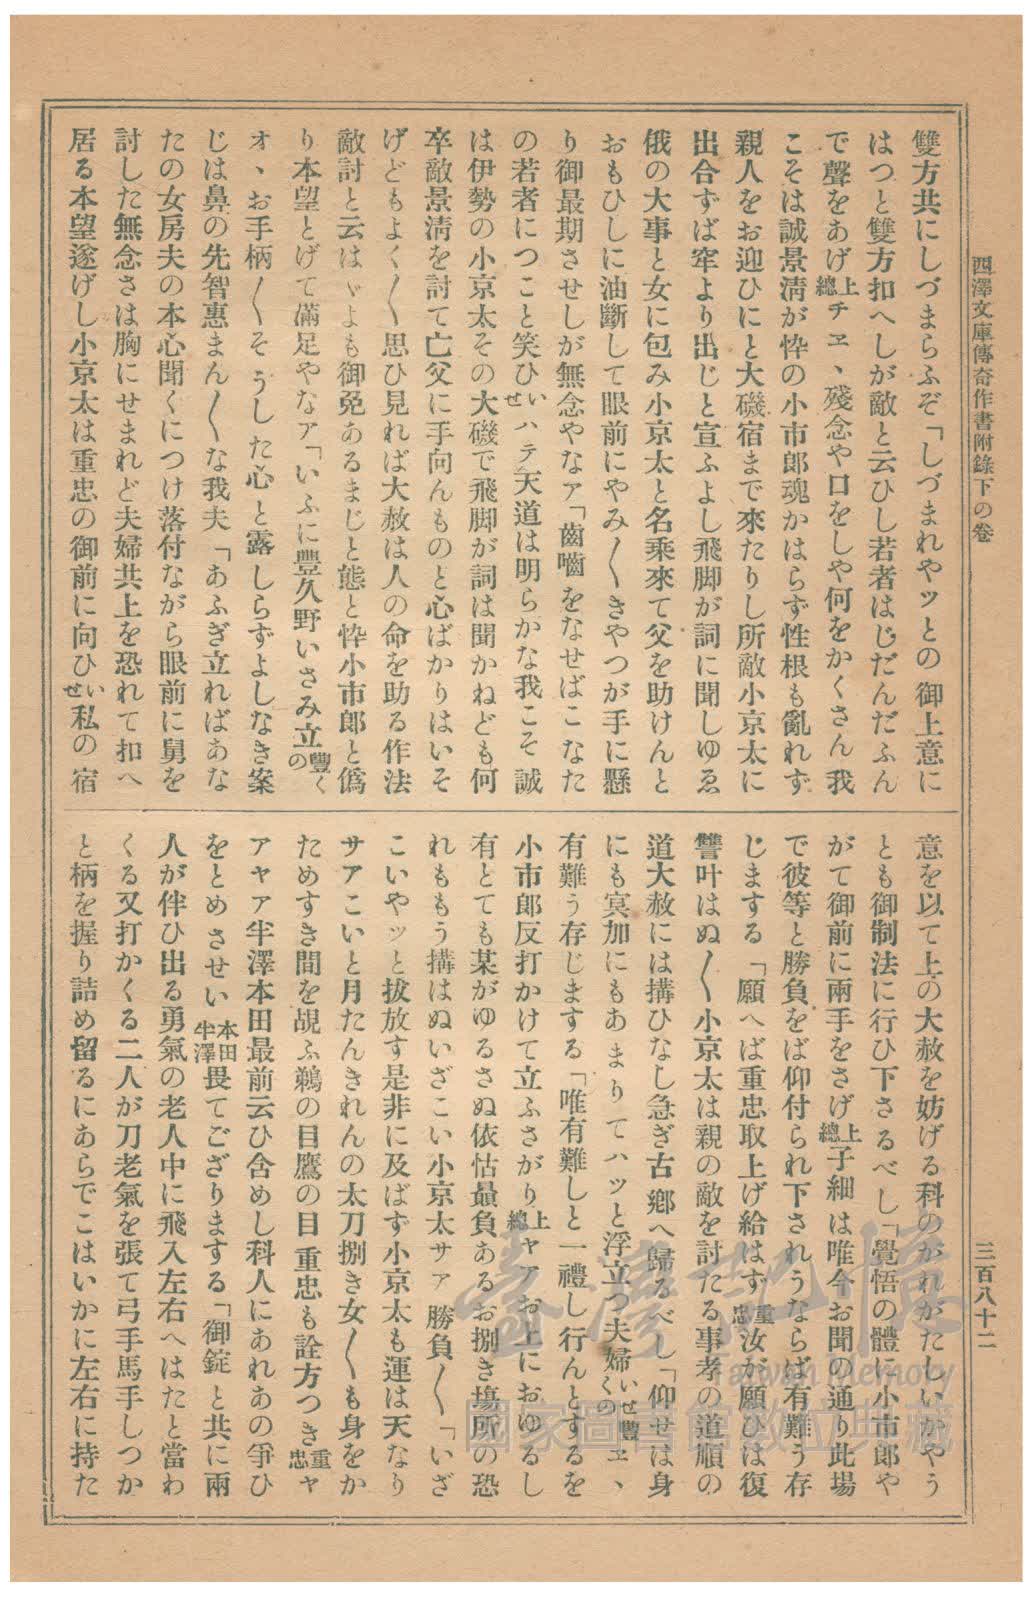 四澤文庫傳奇作書附錄下の卷
三百八十二
雙方共にしづまらふぞ「しづまれやッとの御上意に
はつと雙方扣へしが敵と云ひし若者はじだんだふん
で聲をあげ上總チヱヽ殘念や口をしや何をかくさん我
こそは誠景淸が忰の小市郎魂かはらず性根も亂れず
親人をお迎ひにと大磯宿まで來たりし所敵小京太に
出合すば牢より出じと宣ふよし飛脚が詞に聞しゆゑ
俄の大事と女に包み小京太と名乘來て父を助けんと
おもひしに油斷して眼前にやみ〳〵きやつが手に懸
り御最期させしが無念やなァ「齒嚙をなせばこなた
の若者につこと笑ひいせハテ天道は明らかな我こそ誠
は伊勢の小京太その大磯で飛脚が詞は聞かねども何
卒敵景淸を討て亡父に手向んものと心ばかりはいそ
げどもよく〳〵思ひ見れば大赦は人の命を助る作法
敵討と云はゞよも御免あるまじと態と忰小市郎と僞
り本望とげて滿足やなァ「いふに豐久野いさみ立豐くの
オヽお手柄〳〵そうした心と露しらずよしなき案
じは鼻の先智惠まん〳〵な我夫「あふぎ立ればあな
たの女房夫の本心聞くにつけ落付ながら眼前に舅を
討した無念さは胸にせまれど夫婦共上を恐れて扣へ
居る本望遂げし小京太は重忠の御前に向ひいせ私の宿
意を以て上の大赦を妨げる科のがれがたしいかやう
とも御制法に行ひ下さるべし「覺悟の體に小市郎や
がて御前に兩手をさげ上總子細は唯今お聞の通り此場
で彼等と勝負をば仰付られ下されうならば有難う存
じまする「願へば重忠取上げ給はず重忠汝が願ひは復
讐叶はぬ〳〵小京太は親の敵を討たる事孝の道順の
道大赦には搆ひなし急ぎ古鄕へ歸るべし「仰せは身
にも冥加にもあまりてハッと浮立つ夫婦いせ豐くのヱヽ
有難う存じまする「唯有難しと一禮し行んとするを
小市郎反打かけて立ふさがり上總ャァお上におゆるし
有とても某がゆるさぬ依怙贔負あるお捌き塲所の恐
れももう搆はぬいざこい小京太サァ勝負〳〵「いざ
こいやッと拔放す是非に及ばず小京太も運は天なり
サアこいと月たんきれんの太刀捌き女〳〵も身をか
ためすき間を覘ふ鵜の目鷹の目重忠も詮方つき重忠ャ
アャア半澤本田最前云ひ含めし科人にあれあの爭ひ
をとめさせい本田半澤畏てござりまする「御錠と共に兩
人が伴ひ出る勇氣の老人中に飛入左右へはたと當わ
くる又打かくる二人が刀老氣を張て弓手馬手しつか
と柄を握り詰め留るにあらでこはいかに左右に持た
臺灣記憶
Taiwan Memory
國家圖書館數位典藏